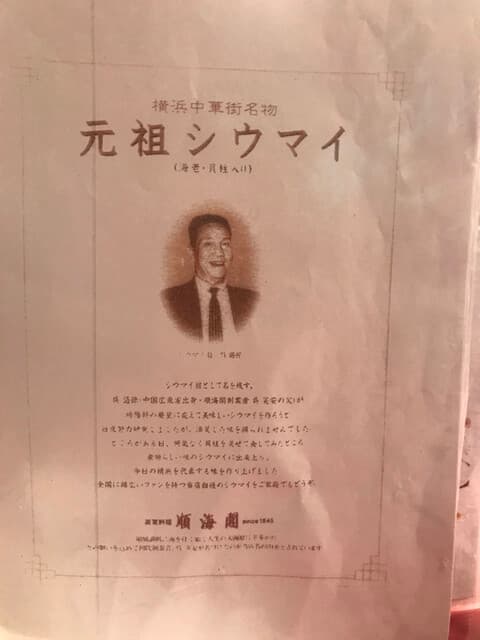 横浜中華街名物
元祖シウマイ
(海老・貝柱入り)
シウマイ
シウマイ王として名を残す。
呉 遇孫(中国広東省出身・順海閣創業者 呉 笑安の父)が
崎陽軒の要望に応えて美味しいシウマイを作ろうと
日夜努力研究しましたが、満足した味を得られませんでした
ところがある日、何気なく貝柱を混ぜて食してみたところ
素晴らしい味のシウマイに出来上り。
今日の横浜を代表する味を作り上げました
全国に根強いファンを持つ当店自慢のシウマイをご家庭でもどうぞ。
廣東料理 順海閣 since 1945